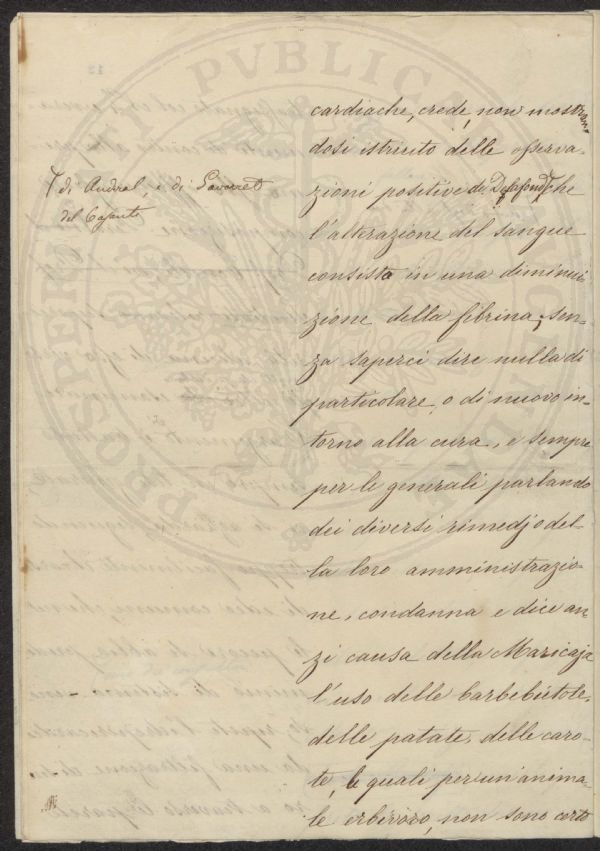 cardiache, crede, non mostran-
dosi istruito delle osserva-
zioni positive di Delafond che
⌈ di Andral, e di Gavarret
l'alterazione del sangue
consista in una diminui
zione della fibrina, sen-
za saperci dire nulla di
particolare, o di nuovo in-
torno alla cura, e sempre
per le generali parlando
dei diversi rimedj o del-
la loro amministrazio-
ne, condanna e dice an
zi causa della Maricaja
l'uso delle barbebietole,
delle patate, delle caro-
te, le quali per un anima-
le erbivoro, non sono certo